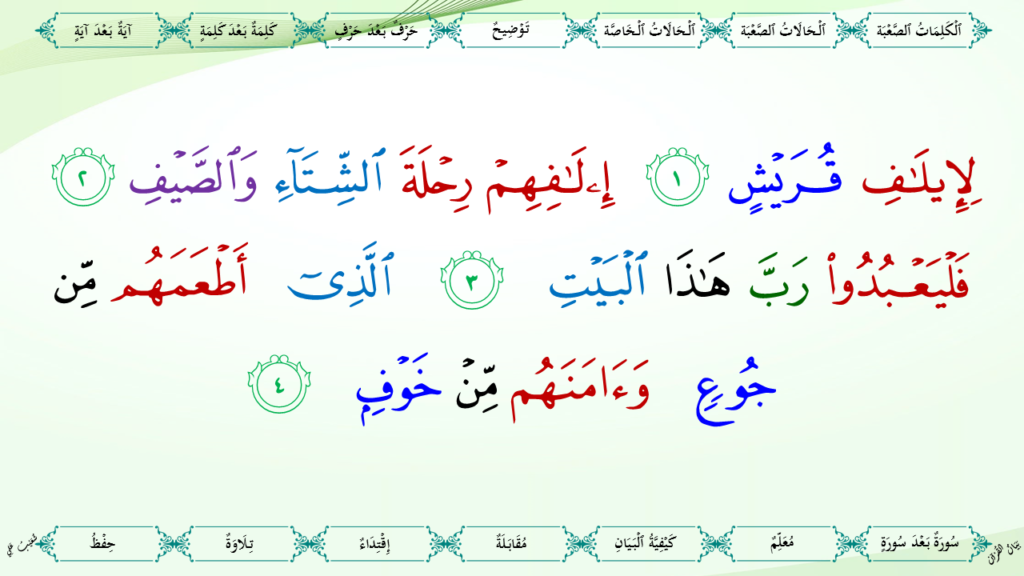 ٱلْكَلِمَاتُ ٱلصَّعْبَة ٱلْحَالَاتُ ٱلصَّعْبَة ٱلْحَالَاتُ ٱلْخَاصَّة تَوْضِيحٌ حَرْفٌ بَعْدَ حَرْفٍ كَلِمَةٌ بَعْدَ كَلِمَةٍ آيَةٌ بَعْدَ آيَةٍ
لِإِيلَـٰفِ قُرَيْشٍ ١ إِۦلَـٰفِهِمْ رِحْلَةَ ٱلشِّتَآءِ وَٱلصَّيْفِ ٢
فَلْيَعْبُدُوا۟ رَبَّ هَـٰذَا ٱلْبَيْتِ ٣ ٱلَّذِىٓ أَطْعَمَهُم مِّن
جُوعٍ وَءَامَنَهُم مِّنْ خَوْفٍۭ ٤
سُورَةٌ بَعْدَ سُورَةٍ مُعَلِّمٌ كَيْفِيَّةُ ٱلْبَيَانِ مُقَابَلَةٌ إِقْتِدَاءٌ تِلَاوَةٌ حِفْظُ